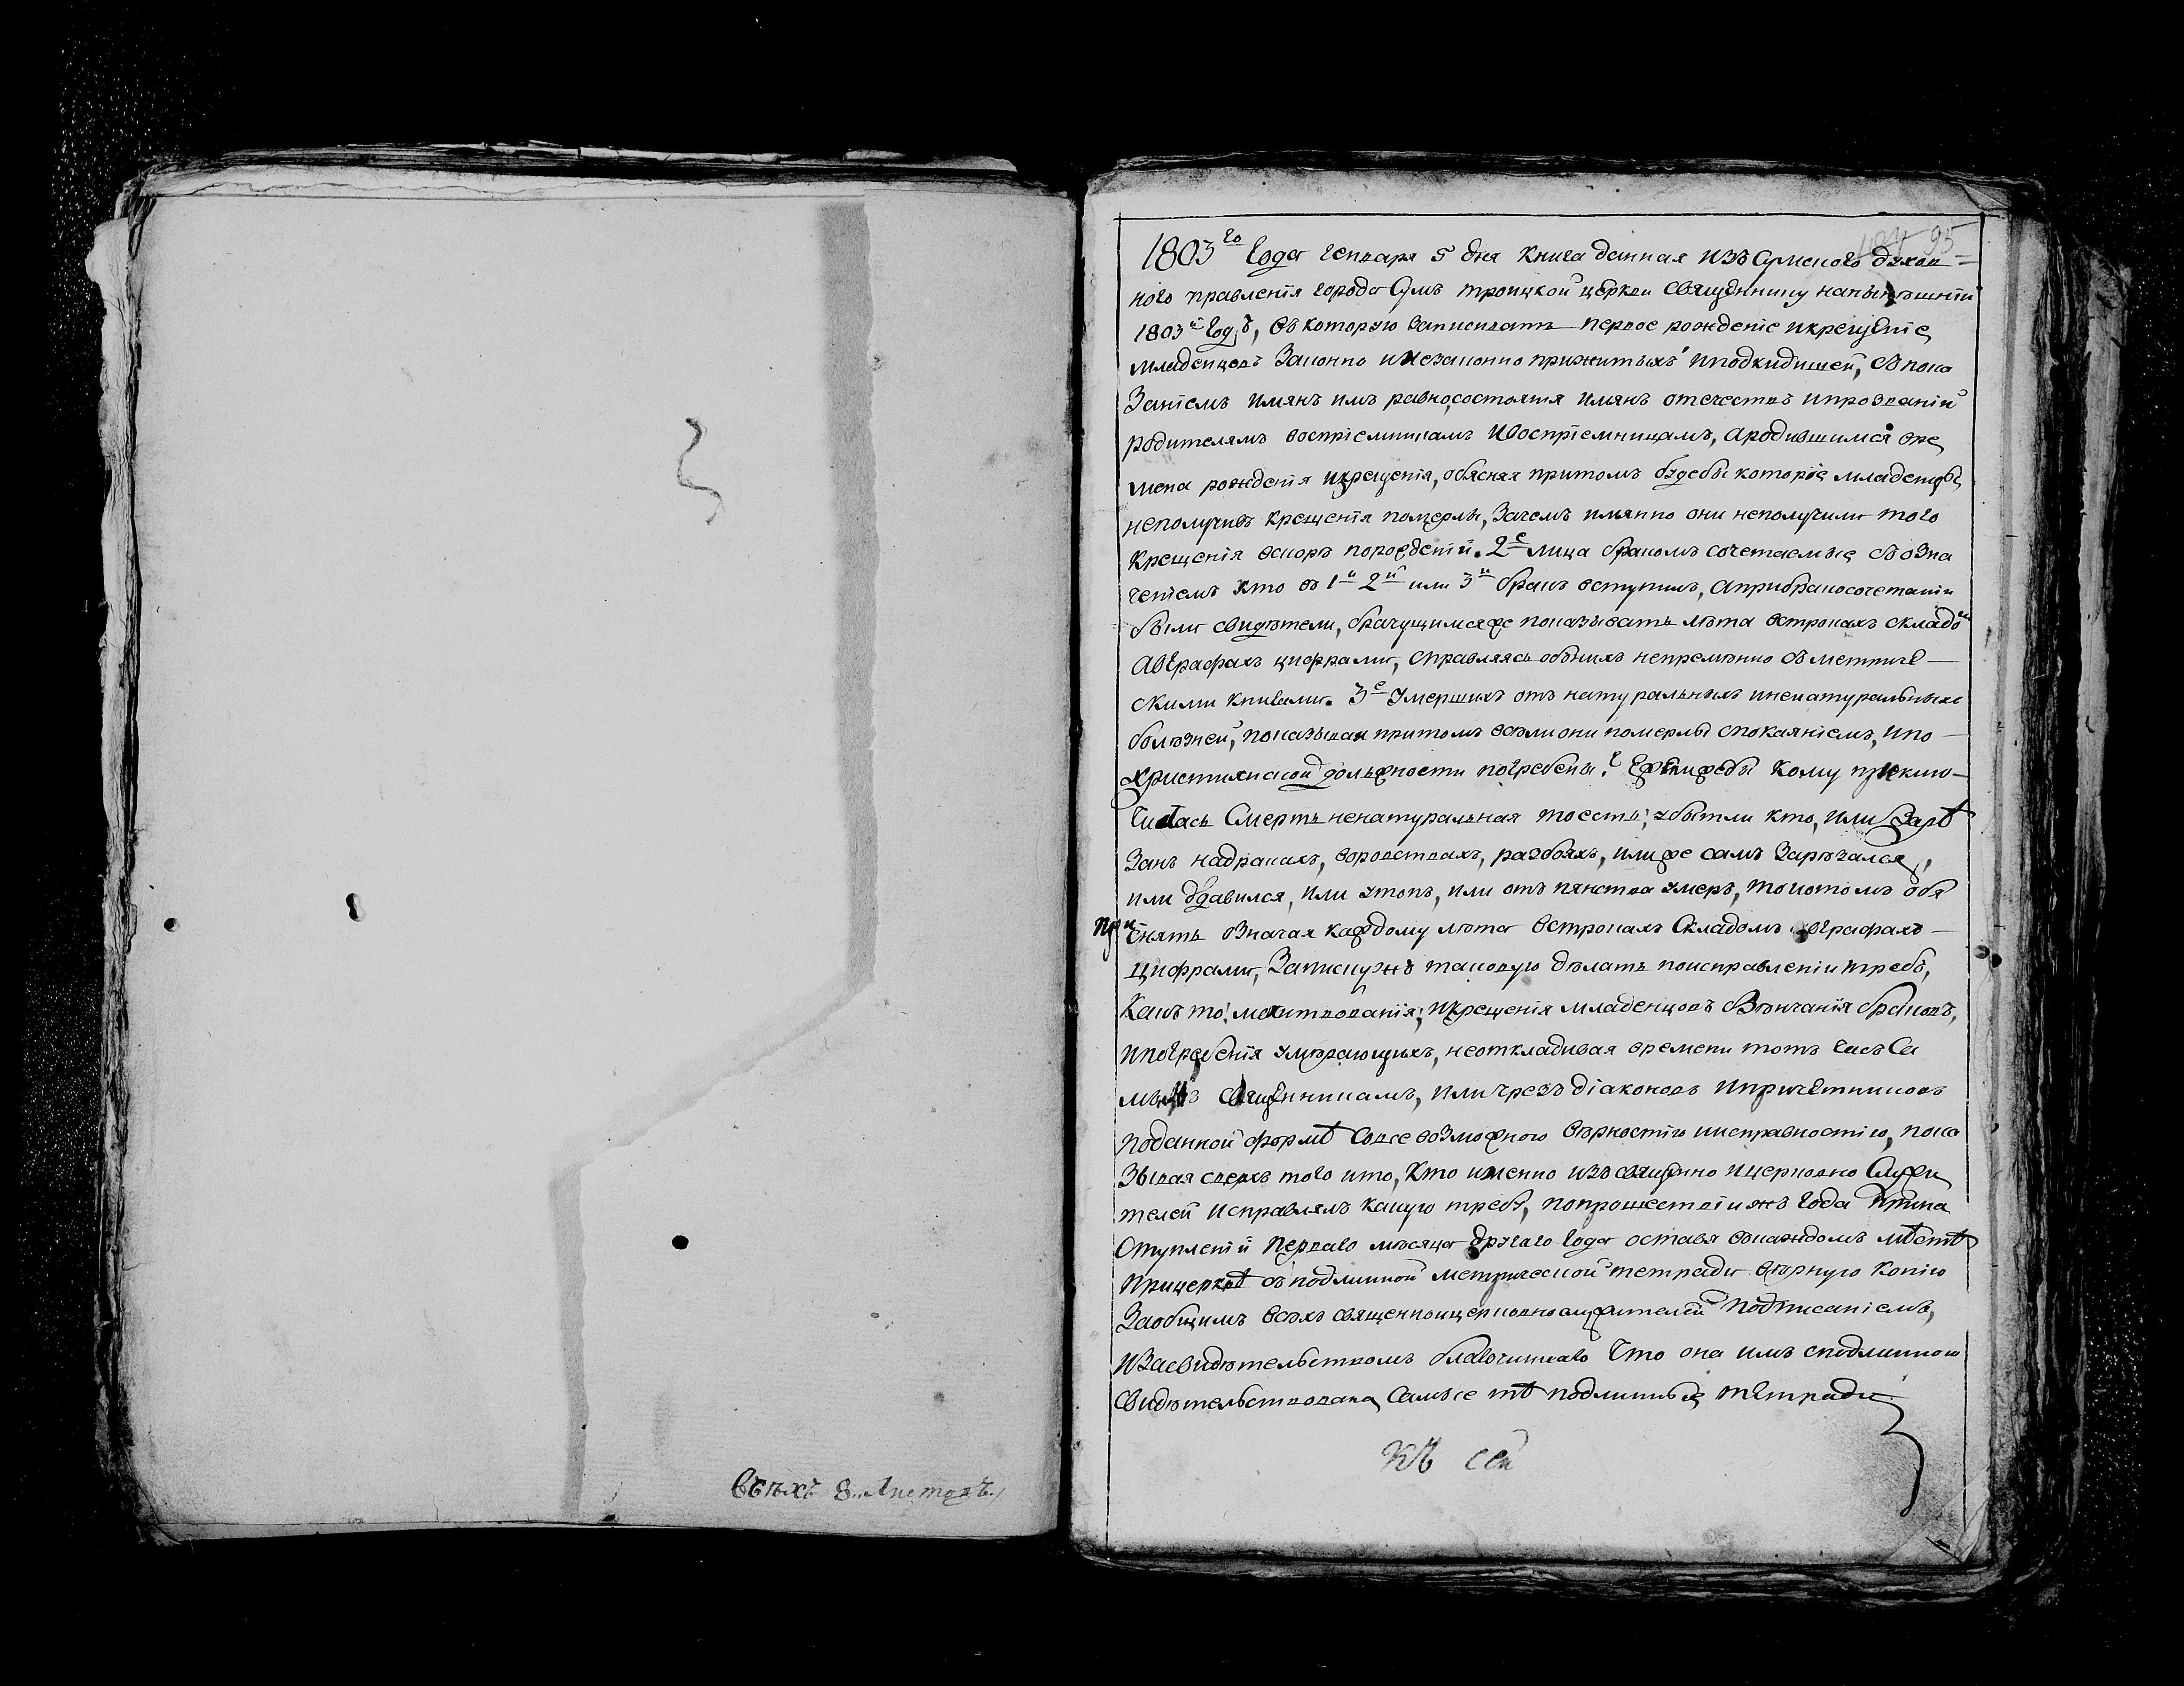 всѣхъ 8. листовъ.
95
1803го года генваря 5 дня книга данная изъ Сумского духов=
ного правленія города Сумъ троицкой церкви священнику нанынѣшній
1803й годъ, въ которую записивать первое рожденіе икрещеніе
младенцовъ законно инезаконно прижитыхъ иподкидишей, съ пока
заніемъ имянъ имъ равно состоянія имянъ отечествъ ипрозваній
родителямъ воспріемникамъ ивоспріемницамъ, ародившимся вре
мена рожденія икрещенія, обясняя притомъ будебы которіе младенцы
неполучивъ крещенія померли, зачемъ имянно они неполучили того
крещенія вскоръ порожденіи. 2е лица бракомъ сочетаемые съ озна
ченіемъ кто въ 1й 2й или 3й бракъ вступилъ, априбракосочетаніи
были свидѣтели, брачущимсяже показывать лѣта встрокахъ складом
авграфахъ цифрами, справляясь обонихъ непремѣнно съ метриче
скими книгами. 3е умершихъ отъ натуральныхъ иненатуральныхъ
болѣзней, показывая притомъ всѣлиони померлы спокаяніемъ, ипо
християнской должности погребены? Ежелижебы кому приклю
чилась смерть ненатуральная тоесть; убытли кто, или зарѣ
занъ надракахъ, воровствахъ, разбояхъ, илиже самъ зарѣзался,
или удавился, или утопъ, или отъ пянства умеръ, то опомъ обя
при
снять означая каждому лѣта встрокахъ складомъ авграфахъ
цифрами, запискужъ таковую дѣлать поисправленіи требъ,
какъ то: молитвованія; икрещенія младенцовъ вѣнчанія браковъ,
ипогребенія умѣрающихъ, неоткладивая времени тотъ часъ са
мымъ священникамъ, или чрезъ діаконовъ ипричетниковъ
поданной формѣ совсе возможною вѣрностію иисправностію, пока
зывая сверхъ того ито, кто именно изъ священно ицерковно служи
телей исправлялъ какую требу, попрошествіи жъ года припа
ступленіи перваго мѣсяца другаго года оставя вкаждомъ мѣстѣ
прицерквѣ съ подлинной метрической тетради вѣрную копію
заобщимъ всѣхъ священноицерковнослужителей подписаніемъ,
изасвидѣтельствомъ благочиннаго что она имъ сподлинною
свидѣтельствована, самые тѣ подлинные тетради
къ сей